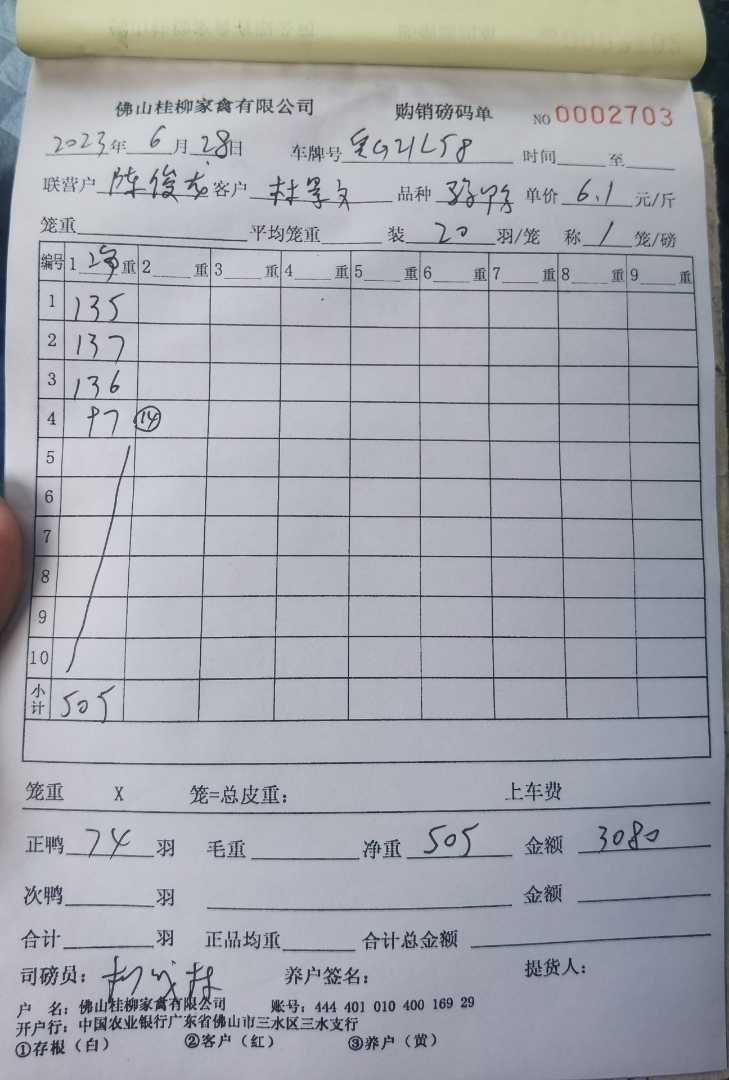 佛山桂柳家禽有限公司 购销磅码单 NO 0002703
2023年 6月 28日 车牌号 G21L58 时间 至
联营户 陈俊龙 客户 林 品种 单价 6.1 元/斤
笼重 平均笼重 装 20 羽/笼 称 1 笼/磅
编号 1 净 重 2 重 3 重 4 重 5 重 6 重 7 重 8 重 9 重
1 135
2 137
3 136
4 97 ⑭
5
6
7
8
9
10
小计 505
笼重 X 笼=总皮重: 上车费
正鸭 74 羽 毛重 净重 505 金额 3080
次鸭 羽 金额
合计 羽 正品均重 合计总金额
司磅员: 养户签名: 提货人:
户 名: 佛山桂柳家禽有限公司 账号: 444 401 010 400 169 29
开户行: 中国农业银行广东省佛山市三水区三水支行
①存根（白） ②客户（红） ③养户（黄）